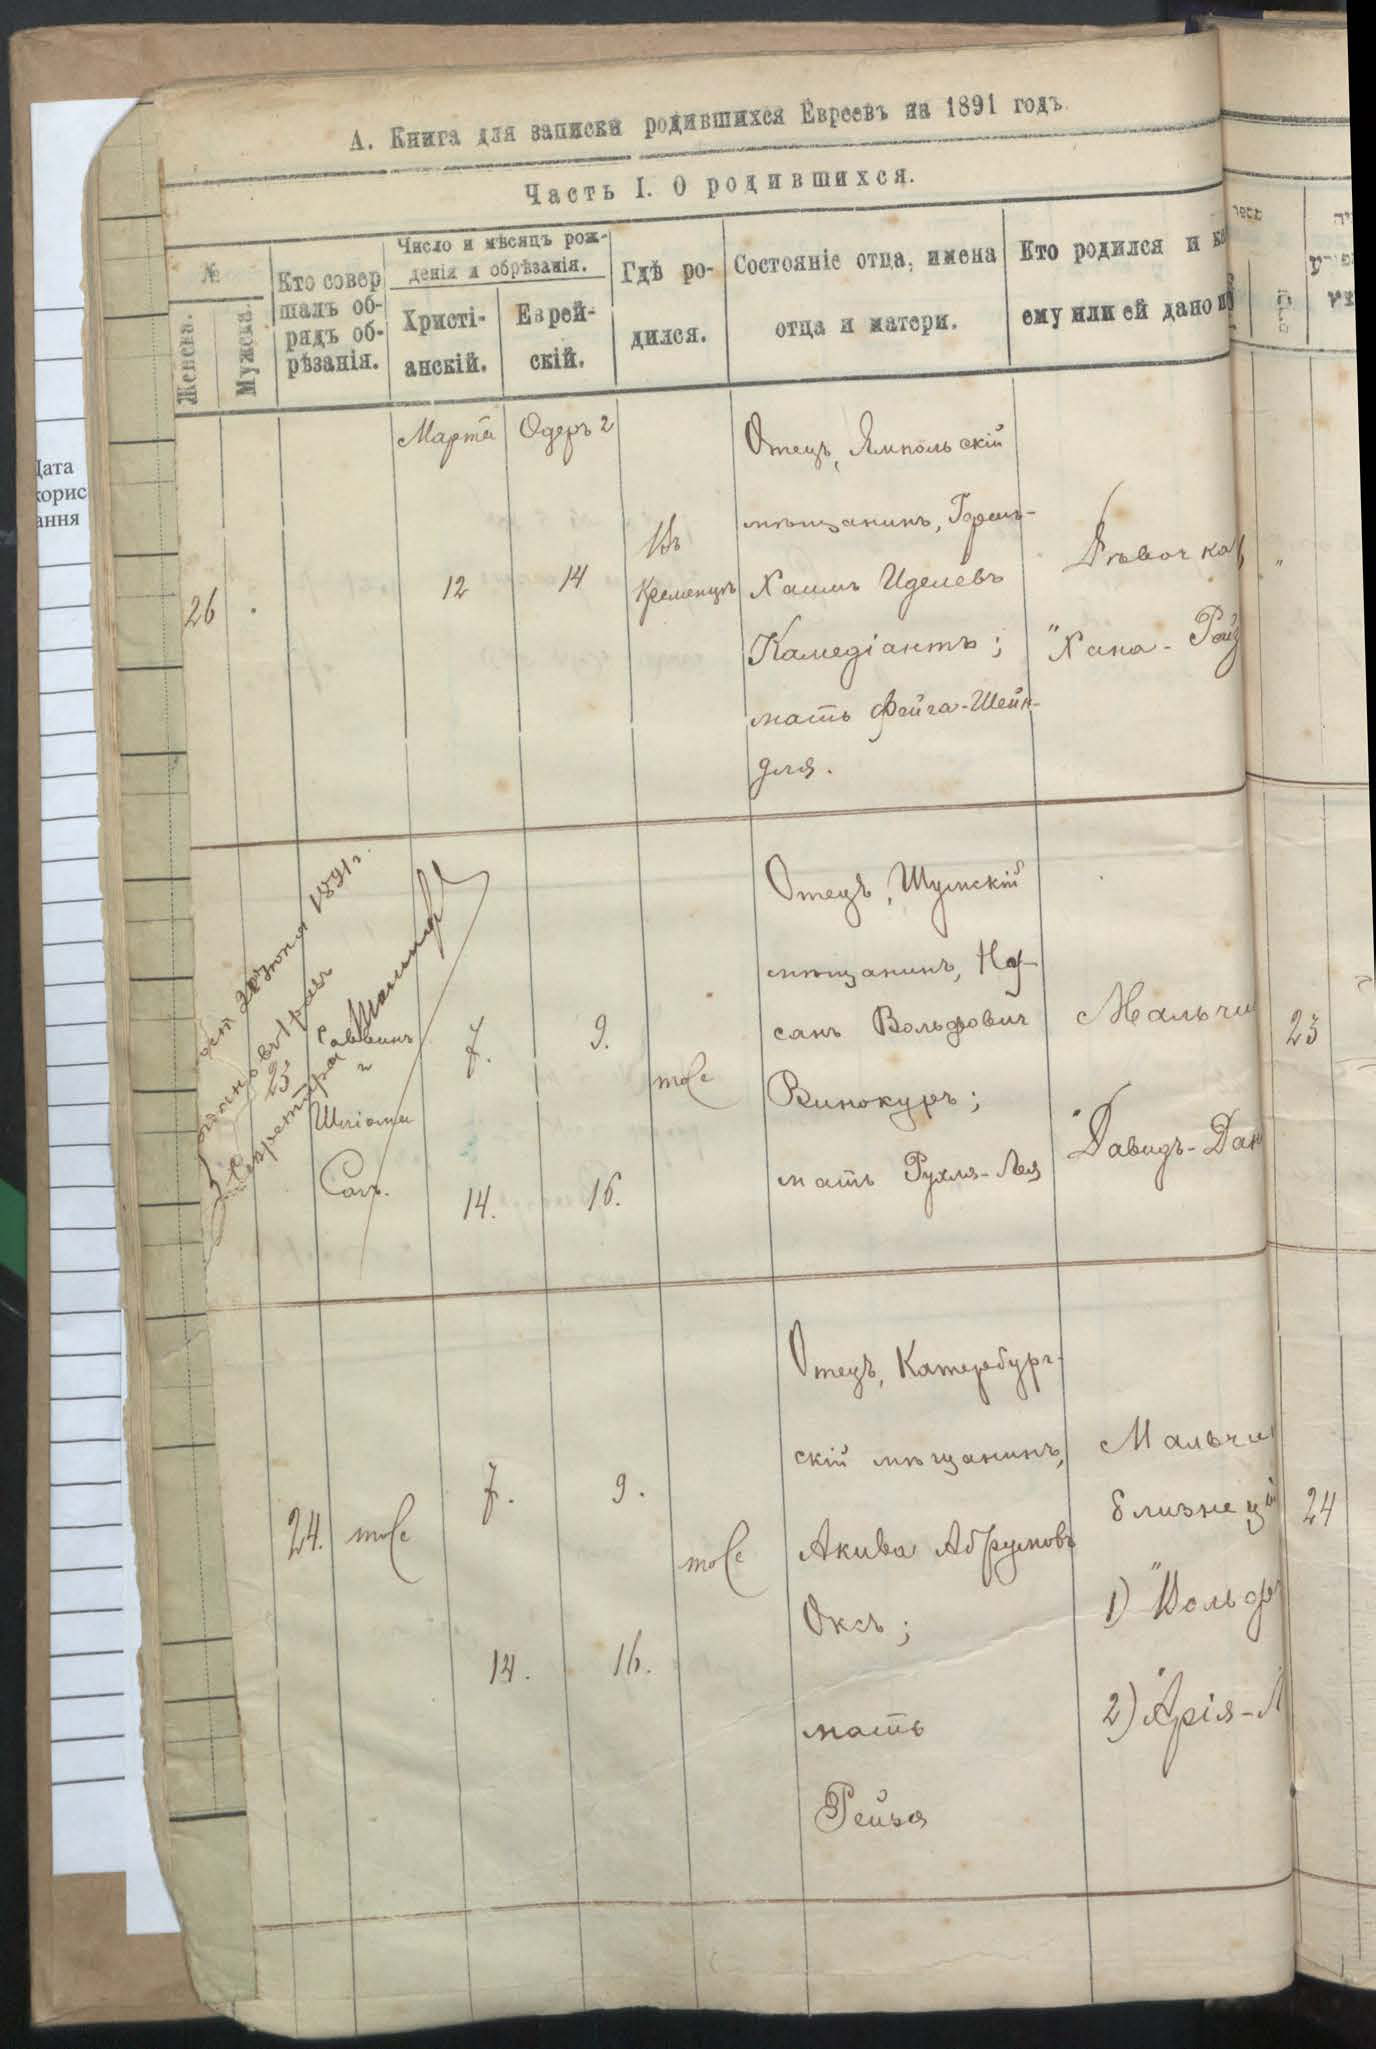 Дата
корис
ання
А. Книга для записки родившихся Евреевъ на 1891 годъ.
Часть I. О родившихся.
№
Женска.
Мужска.
Кто совер
шалъ об-
рядъ об-
рѣзанія.
Число и мѣсяцъ рож-
денія и обрѣзанія.
Христі-
анскій.
Еврей-
скій.
Гдѣ ро-
дился.
Состояніе отца, имена
отца и матери.
Кто родился и ка
ему или ей дано и
26
Марта
12
Одеръ 2
14
Въ
Кременцѣ
Отецъ, Ямпольскій
мѣщанинъ,
Хаимъ Иделевъ
Камедіантъ;
мать Фейга-Шейн-
для.
Дѣвочка
"Хана-Рой
1891 г.
Саввинъ
и
Шліома
Сагъ.
7.
14.
9.
16.
тоже
Отецъ, Шумскій
мѣщанинъ, На-
санъ Вольфовичъ
Винокуръ;
мать Рухля-Лея
Мальчи
"Давидъ-Дан
23
24.
тоже
7.
14.
9.
16.
тоже
Отецъ, Катербург-
скій мѣщанинъ,
Акива Абрумовъ
Оксъ;
мать
Рейзя
Мальчи
близнецы
1) "Вольф
2) "Арія-Л
24